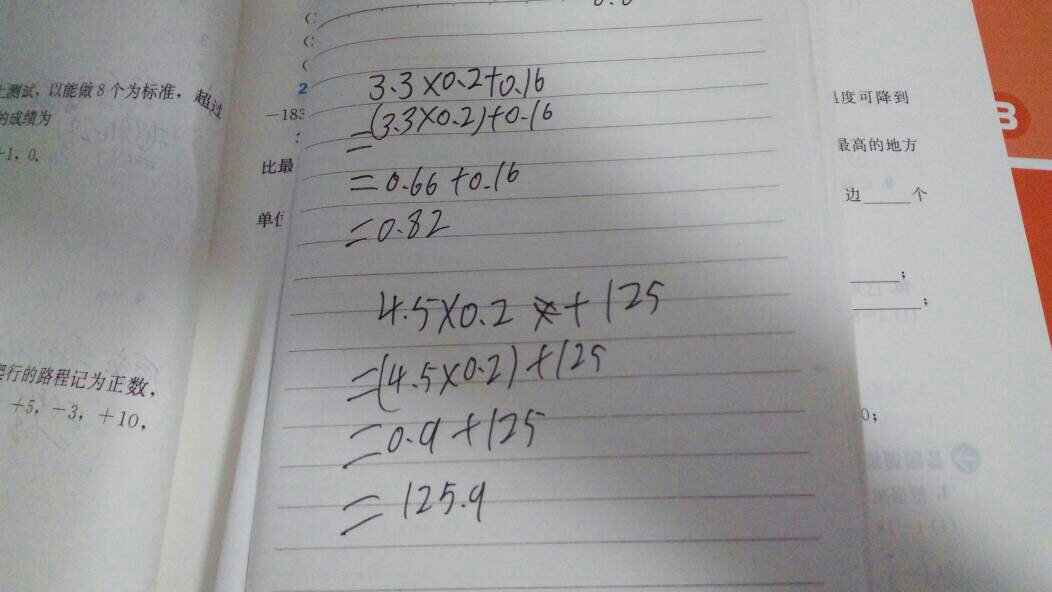 上测试,以能做8个为标准,超过
的成绩为
-1,0.
2
-183
比最
单位
3.3×0.2+0.16
=(3.3×0.2)+0.16
=0.66+0.16
=0.82
4.5×0.2 +125
=(4.5×0.2)+125
=0.9+125
=125.9
爬行的路程记为正数,
+5,-3,+10,
温度可降到
最高的地方
边____个
____;
____;
0;
B